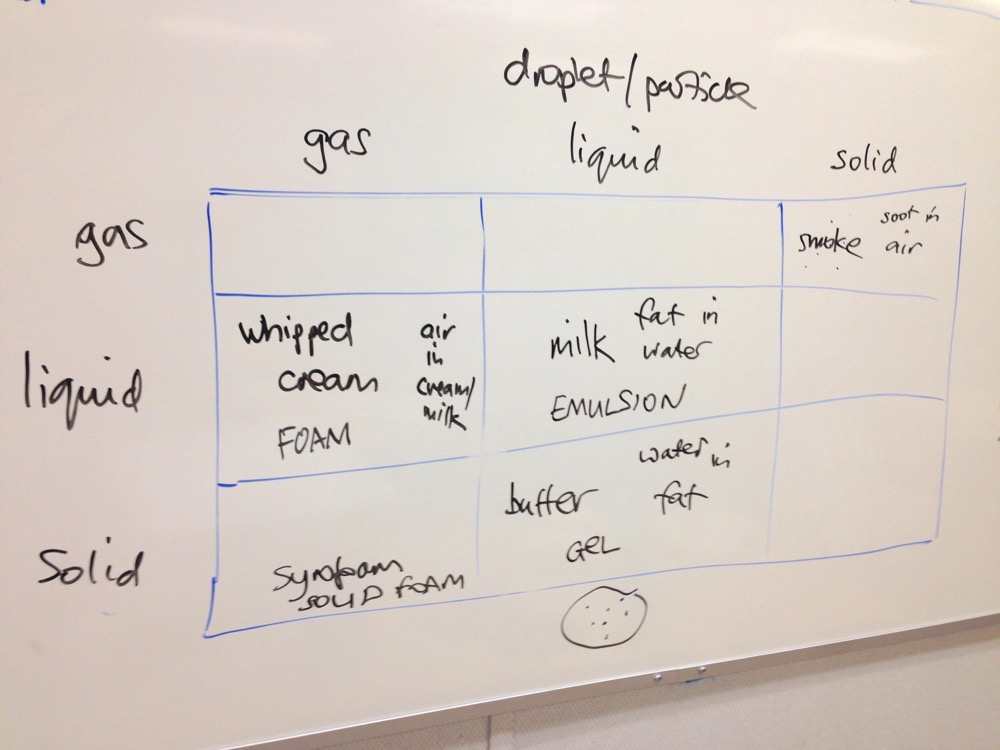 droplet/particle
gas liquid solid
gas
smoke soot in air
liquid
whipped cream air in cream/milk
FOAM
milk fat in water
EMULSION
Solid
syrofoam
SOLID FOAM
butter water in fat
GEL